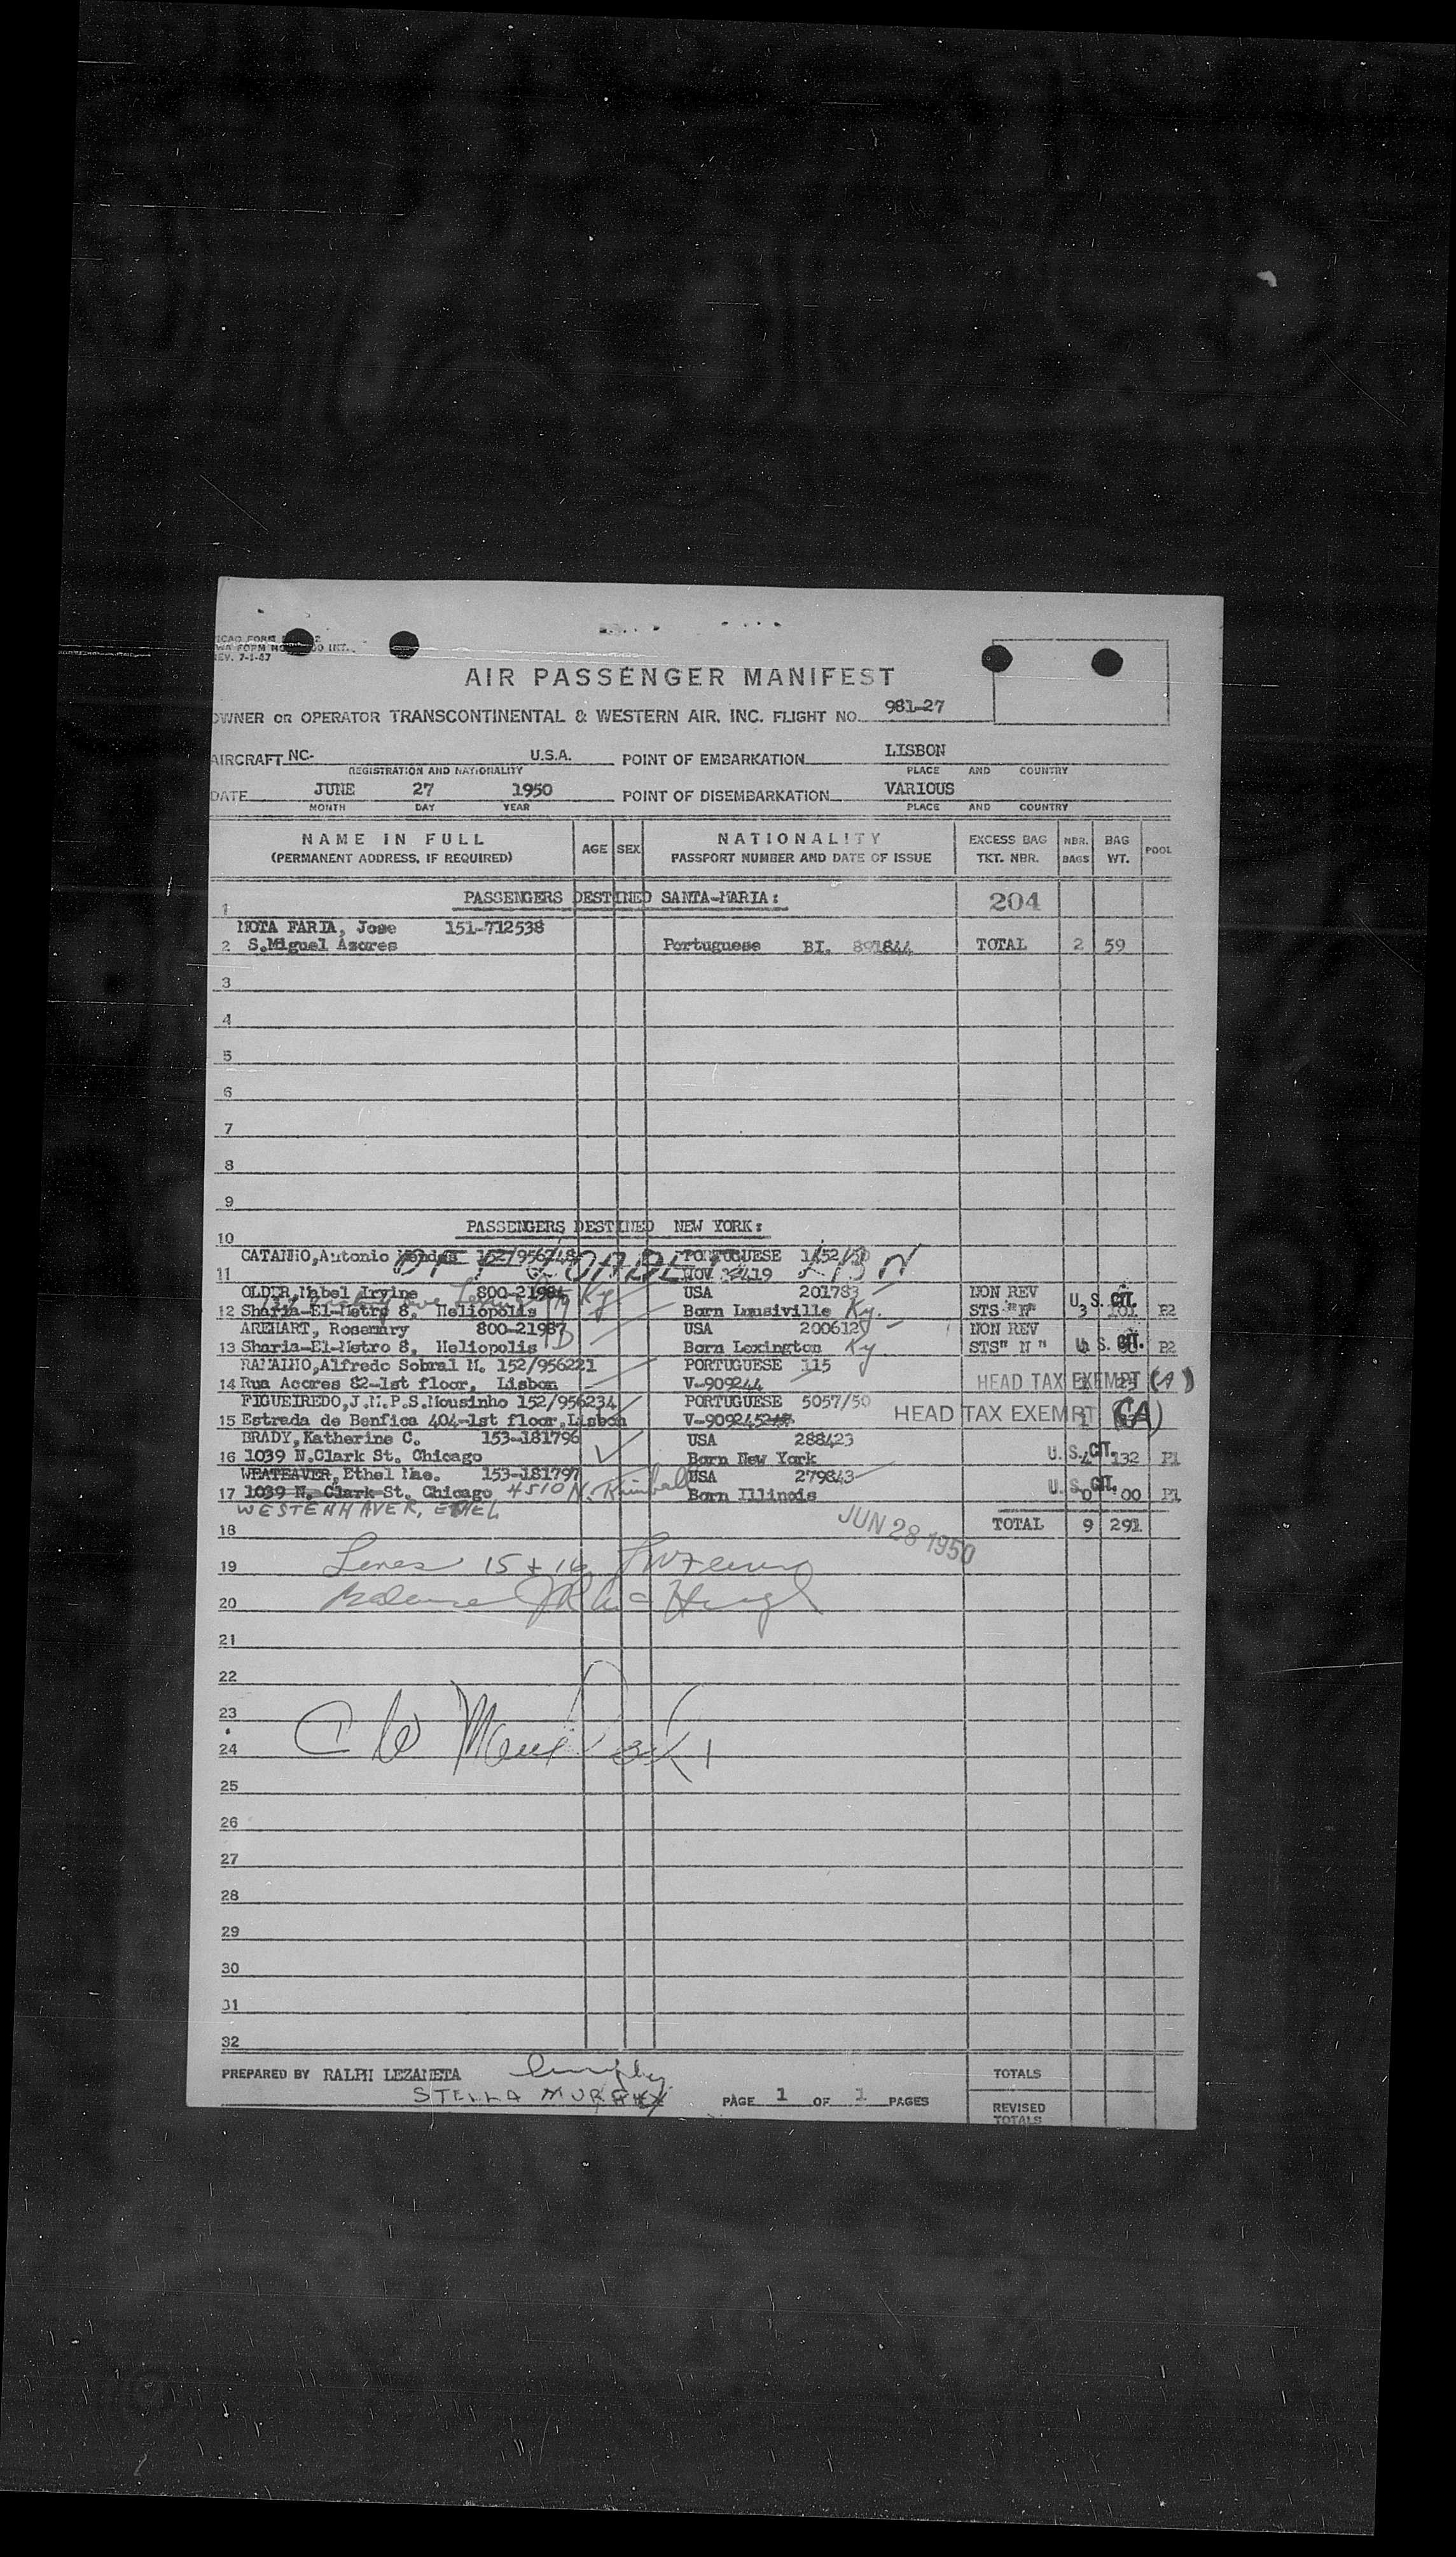 REV. 7-1-47
AIR PASSENGER MANIFEST
OWNER OR OPERATOR TRANSCONTINENTAL & WESTERN AIR, INC. FLIGHT NO. 981-27
AIRCRAFT NC- U.S.A. POINT OF EMBARKATION LISBON
REGISTRATION AND NATIONALITY PLACE AND COUNTRY
DATE JUNE 27 1950 POINT OF DISEMBARKATION VARIOUS
MONTH DAY YEAR PLACE AND COUNTRY
NAME IN FULL AGE SEX NATIONALITY EXCESS BAG NBR. BAG POOL
(PERMANENT ADDRESS, IF REQUIRED) PASSPORT NUMBER AND DATE OF ISSUE TKT. NBR. BAGS WT.
1 PASSENGERS DESTINED SANTA-MARIA: 204
MOTA FARIA, Jose 151-712538
2 S.Miguel Azores Portuguese BI. 891844 TOTAL 2 59
3
4
5
6
7
8
9
10 PASSENGERS DESTINED NEW YORK:
Antonio PORTUGUESE
11 NOV
OLDER, Mabel Irvine USA 201783 NON REV
12 Sharia-El-Metro 8, Heliopolis Born Lousiville Ky. STS "N" U.S. CIT. P2
AREHART, Rosemary 800-21987 USA NON REV
13 Sharia-El-Metro 8, Heliopolis Born Lexington Ky STS" N " U.S. CIT. P2
RAMALHO, Alfredo Sobral M. 152/956221 PORTUGUESE 115
14 Rua Acores 82-1st floor, Lisbon V-909244 HEAD TAX EXEMPT (A)
FIGUEIREDO, J.M.P.S.Mousinho 152/956234 PORTUGUESE 5057/50
15 Estrada de Benfica 404-1st floor, Lisbon HEAD TAX EXEMPT
BRADY, Katherine C. 153-181796 USA 288423
16 1039 N.Clark St. Chicago Born New York U.S. CIT. 132 P1
WEATEAVER, Ethel Mae. 153-181797 USA 279843
17 1039 N. Clark St. Chicago 4510 N. Kimball Born Illinois U.S. CIT. 0 00 P1
WESTENHAVER, ETHEL
18 JUN 28 1950 TOTAL 9 291
19 Lines 15 + 16
20
21
22
23
24
25
26
27
28
29
30
31
32
PREPARED BY RALPH LEZAMETA TOTALS
STELLA MURPHY PAGE 1 OF 1 PAGES REVISED
TOTALS